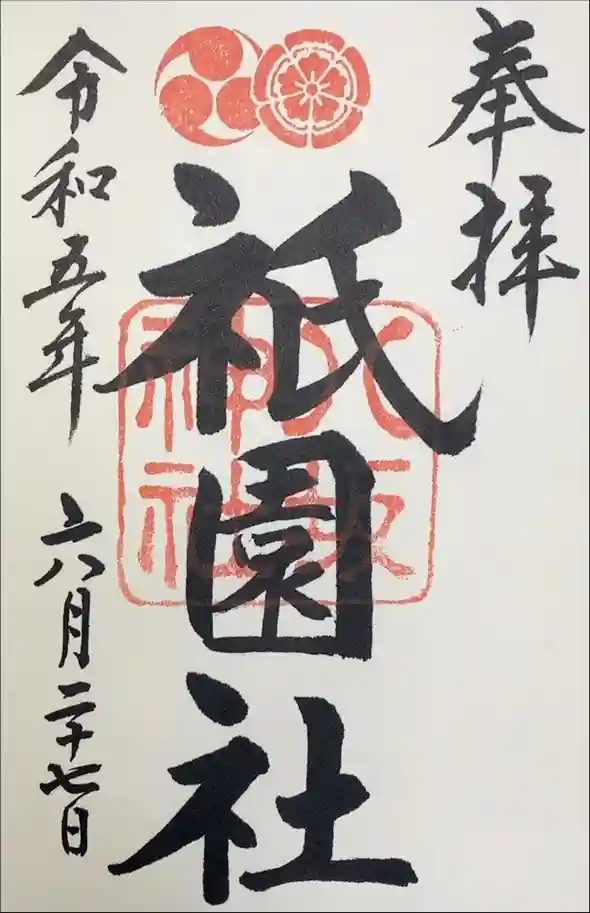 奉拝
祇園社
八坂
神社
令和五年 六月二十七日